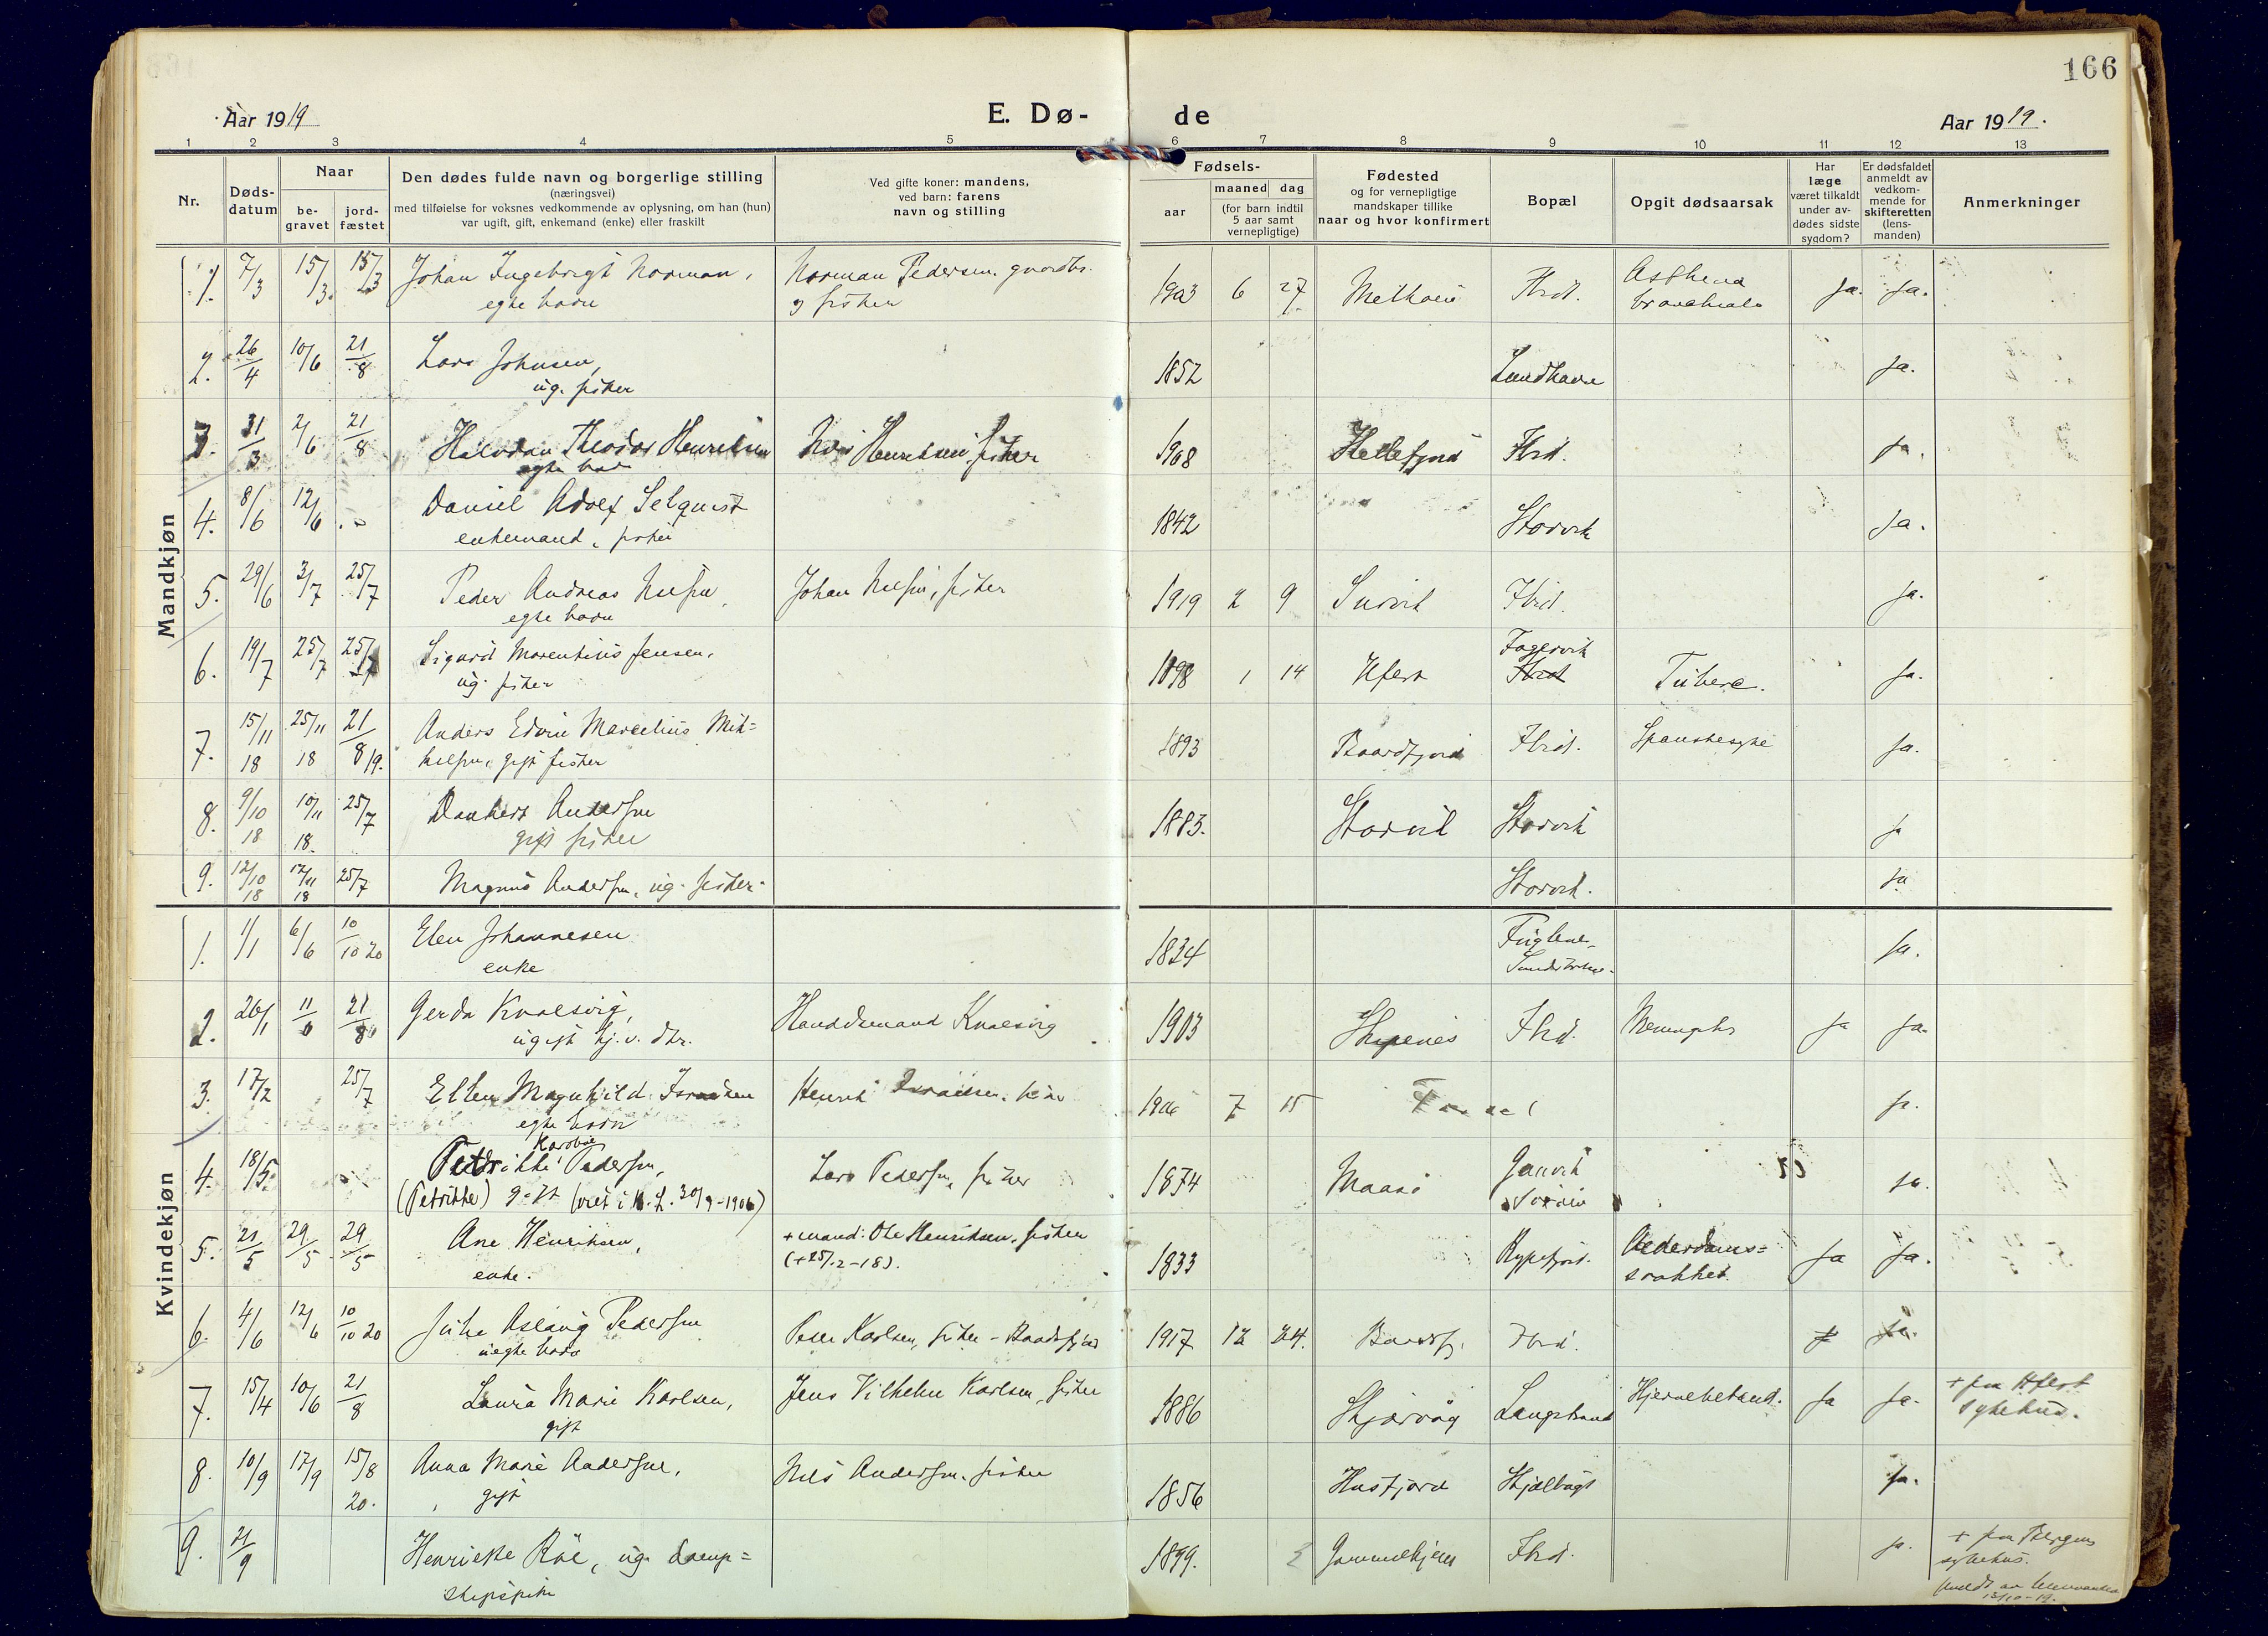 166
Aar 1919
E. Dø-
de
Aar 1919.
1 2 3 4 5 6 7 8 9 10 11 12 13
Nr.
Døds-
datum
Naar
be-
gravet
jord-
fæstet
Den dødes fulde navn og borgerlige stilling
(næringsvei)
med tilføielse for voksnes vedkommende av oplysning, om han (hun)
var ugift, gift, enkemand (enke) eller fraskilt
Ved gifte koner: mandens,
ved barn: farens
navn og stilling
Fødsels-
aar
maaned dag
(for barn indtil
5 aar samt
vernepligtige)
Fødested
og for vernepligtige
mandskaper tillike
naar og hvor konfirmert
Bopæl
Opgit dødsaarsak
Har
læge
været tilkaldt
under av-
dødes sidste
sygdom?
Er dødsfaldet
anmeldt av
vedkom-
mende for
skifteretten
(lens-
manden)
Anmerkninger
Mandkjøn
1. 7/3 15/3. 15/3 Johan Ingebrigt Norman, Norman Pedersen, gaardbr. 1903 6 27 Ibid. Ja. Ja.
egte barn og fisker
2. 26/4 10/6 21/8 Lars Johnsen, 1852 Ja.
ug. fisker
3. 31/3 2/6 21/8 Halvdan Theodor Henriksen Henriksen, fisker 1908 Hellefjord Ibid. Ja.
egte barn
4. 8/6 12/6 Daniel Adolf Selqvist 1842 Storvik Ja.
enkemand, fisker
5. 29/6 3/7 25/7 Peder Andreas Nilsen, Johan Nilsen, fisker 1919 2 9 Ibid. Ja.
egte barn
6. 19/7 25/7 25/7 Sigurd Marentius Jensen, 1898 1 14 Hfest Fagervik Tuberc. Ja.
ug. fisker Ibid
7. 15/11 18 25/11 18 21/8 19. Anders Edvin Marcelius Mik= 1893 Baardfjord Ibid. Spanskesyke Ja.
kelsen, gift fisker
8. 9/10 18 10/11 18. 25/7 Dankert Andersen 1883. Storvik Storvik Ja
gift fisker
9. 12/10 18 12/11 18 25/7 Magnus Andersen, ug. fisker. Storvik. Ja
Kvindekjøn
1. 1/1 6/6 10/10 20 Elen Johannesen 1834 Fuglenes Ja.
enke
2. 26/1 11/6 21/8 Gerda Kvalsvig, Handelsmand Kvalsvig 1903 Ibid. Ja Ja.
ugift hj. v. dtr.
3. 17/2 25/7 Ellen Magnhild Israelsen Henrik Israelsen, fisker 1906 7 15 Ja.
egte barn
Karoline
4. 18/5. Petrikke Pedersen, Lars Pedersen, fisker 1874 Maasø Ja.
(Petrikke) gift (viet i 30/9-1906)
5. 21/5 29/5 29/5 Ane Henriksen, + mand: Ole Henriksen, fisker 1833 Rypefjord. Alderdoms= Ja Ja.
enke. (+25/12-18). svakhet.
6. 4/6 12/6 10/10 20 Aslaug Pedersen Peder Karlsen, fisker - Baardfjord 1917 12 24. Baardfj. Ibid. Ja.
uegte barn
7. 15/4 10/6 21/8 Laura Marie Karlsen, Jens Vilhelm Karlsen, fisker 1886 Skjærvøg Langstrand Hjernebetænd. Ja Ja. + paa Hfest
gift sykehus.
8. 10/9 17/9 15/8 20. Anna Marie Andersen, Nils Andersen, fisker 1856 Husfjord Ja.
gift
9. 21/9 Henrikke Röe, ug. damp= 1899. Ibid. Ja. + paa Bergens
skipspike sykehus.
13/10-19.